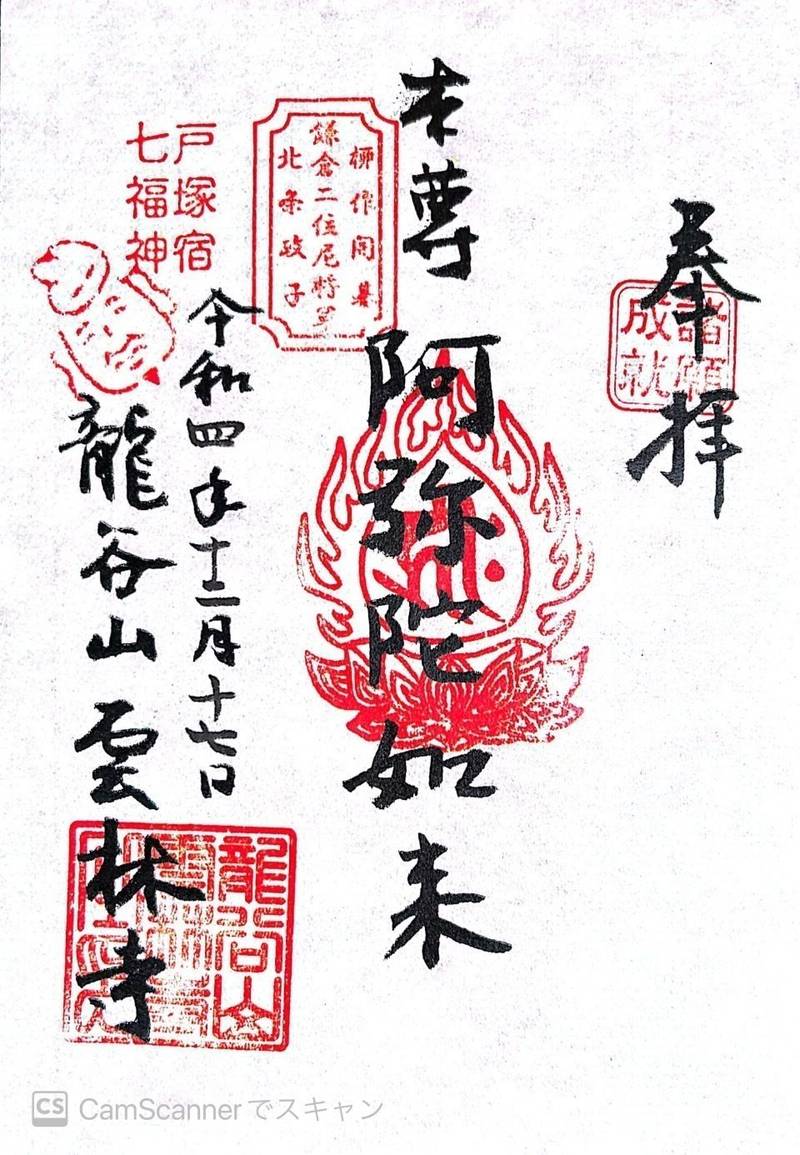 奉拝
諸願
成就
本尊 阿弥陀如来
柳作開基
鎌倉二位尼
北条政子
戸塚宿
七福神
令和四年十二月十七日
龍谷山 雲林寺
龍谷山
雲林寺
CS CamScanner でスキャン